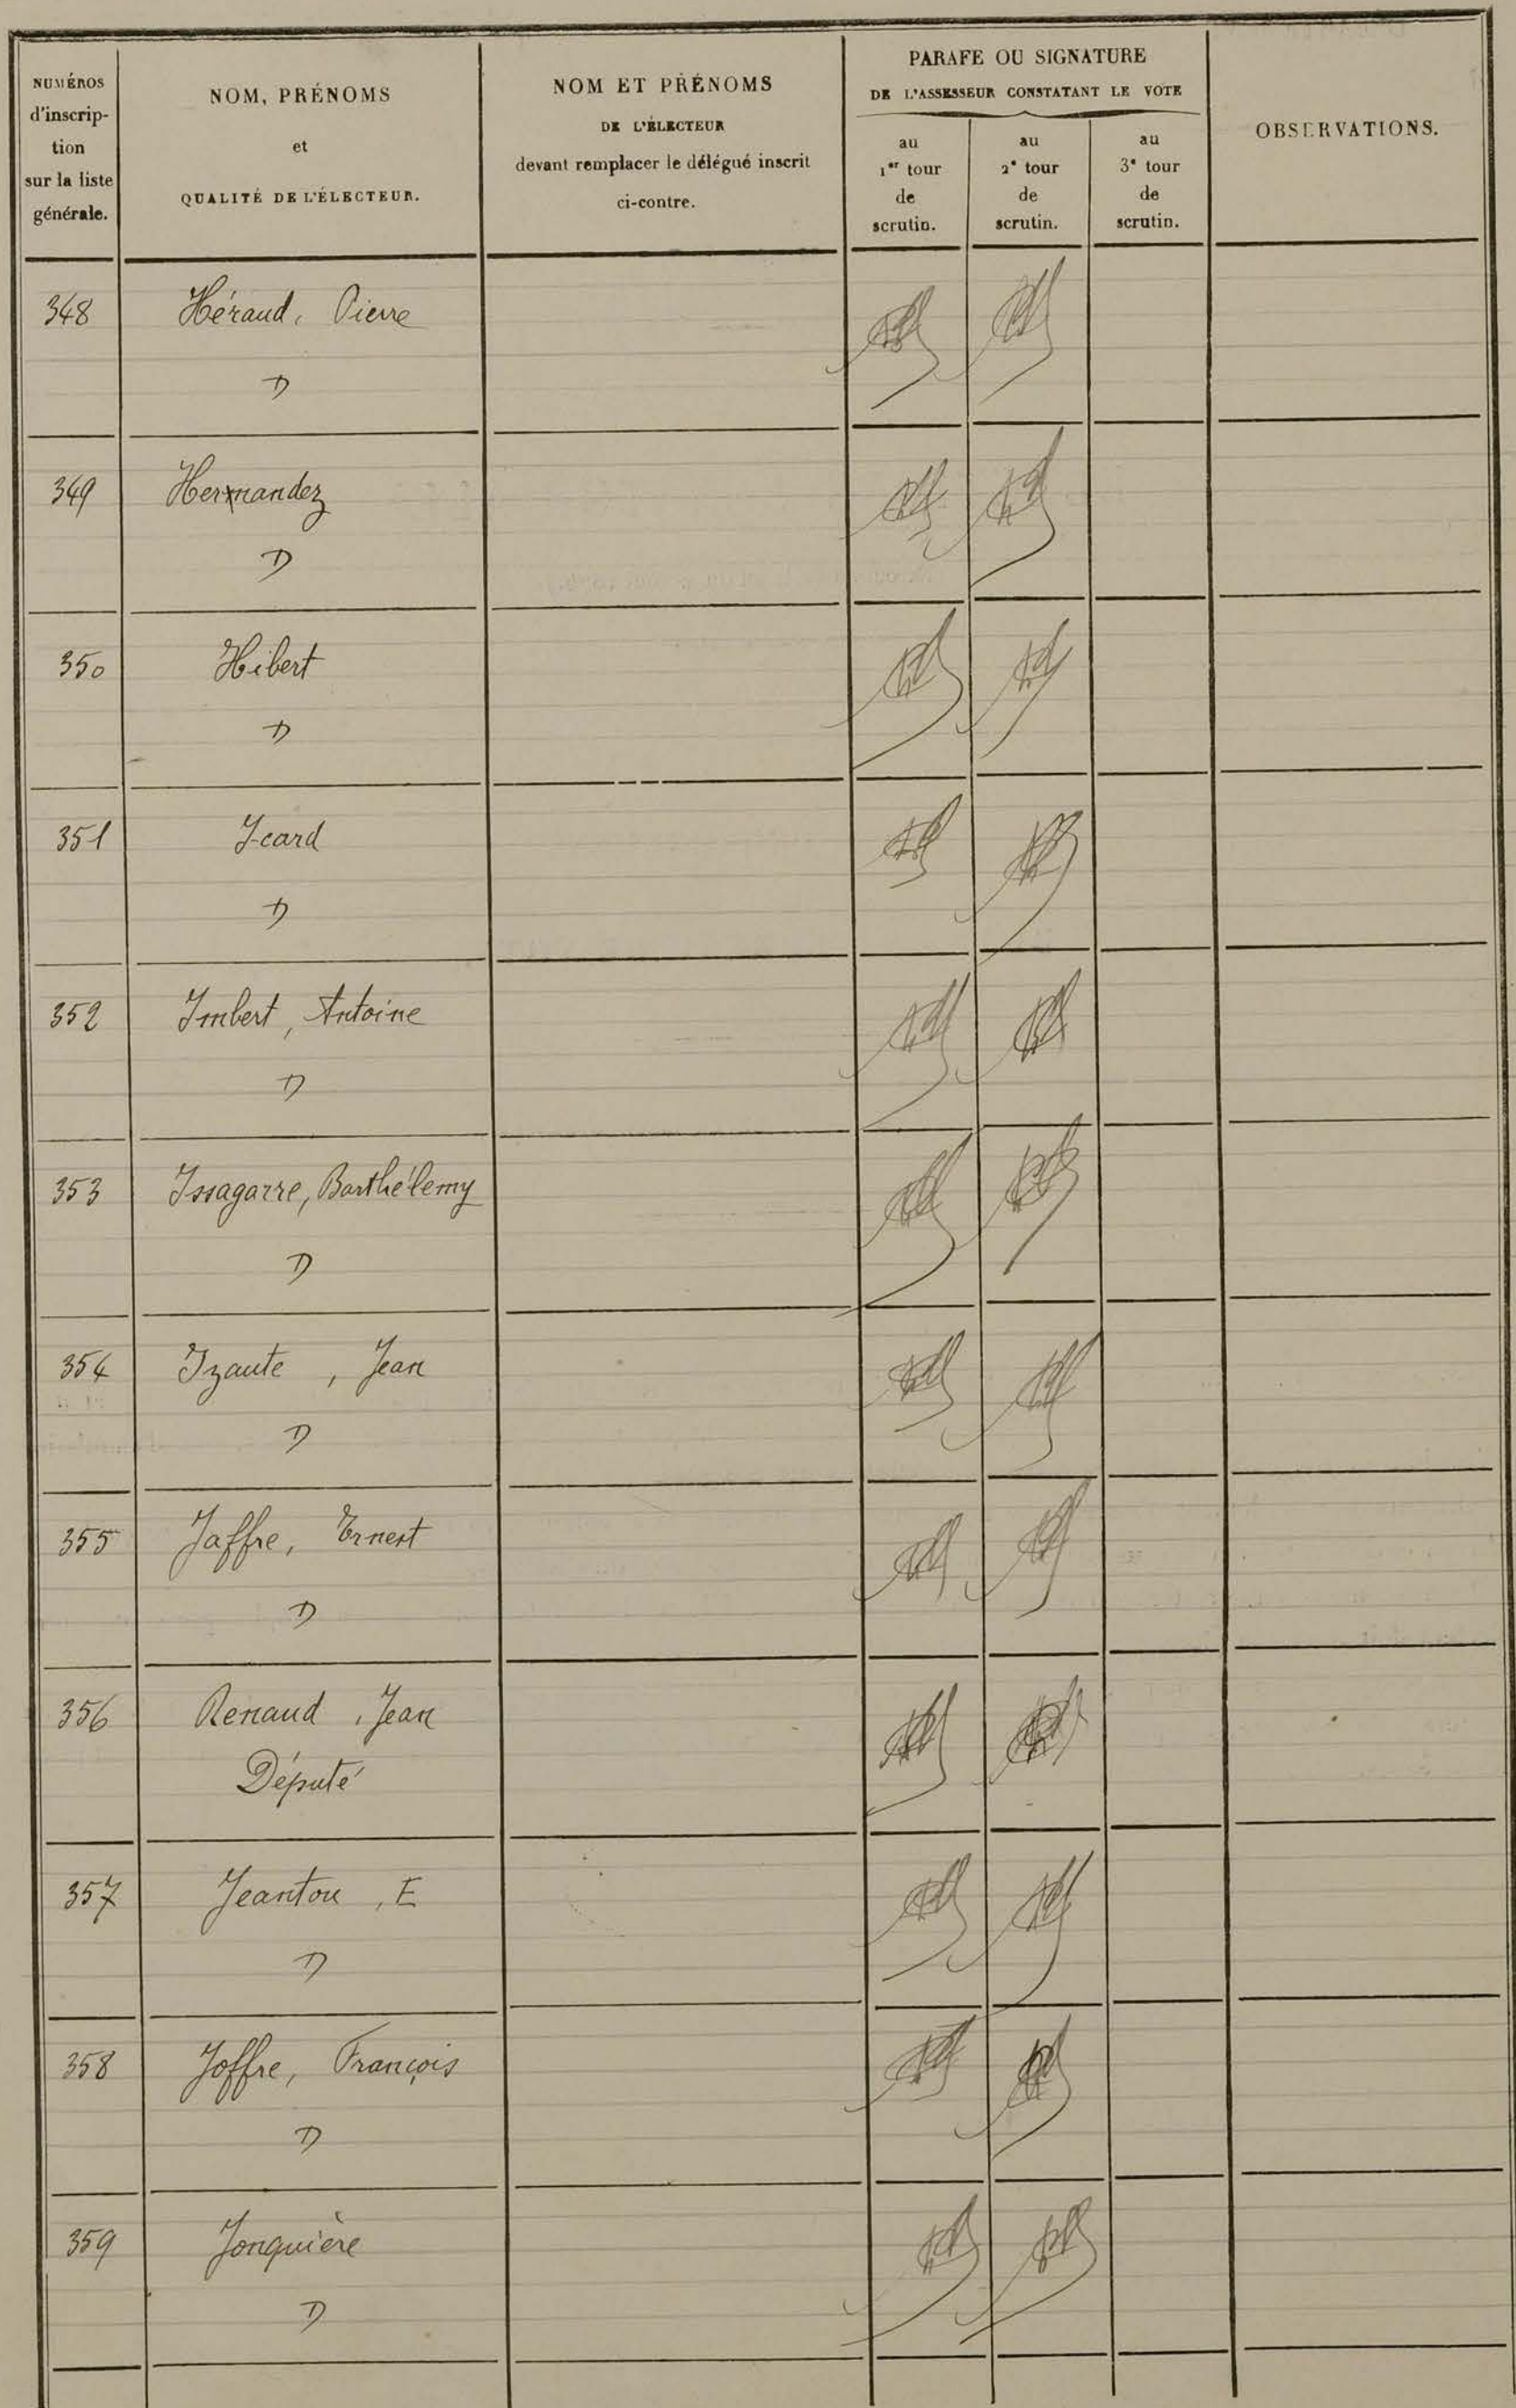 NUMÉROS
d'inscrip-
tion
sur la liste
générale.
NOM, PRÉNOMS
et
QUALITÉ DE L'ÉLECTEUR.
NOM ET PRÉNOMS
DE L'ÉLECTEUR
devant remplacer le délégué inscrit
ci-contre.
PARAFE OU SIGNATURE
DE L'ASSESSEUR CONSTATANT LE VOTE
au
1er tour
de
scrutin.
au
2e tour
de
scrutin.
au
3e tour
de
scrutin.
OBSERVATIONS.
348 Héraud, Pierre
D
349 Hernandez
D
350 Hibert
D
351 Icard
D
352 Imbert, Antoine
D
353 Issagarre, Barthélemy
D
354 Izaute, Jean
D
355 Jaffre, Ernest
D
356 Renaud, Jean
Député
357 Jeantou, E
D
358 Joffre, François
D
359 Jonquière
D